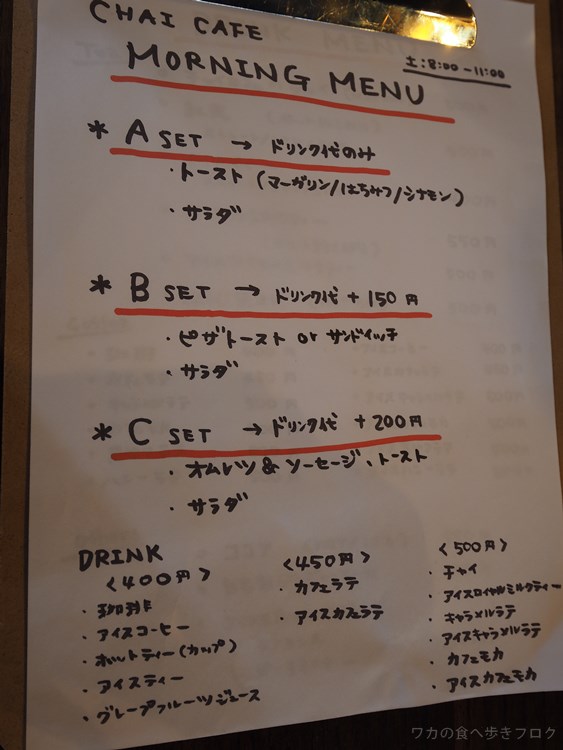 CHAI CAFE
MORNING MENU
土:8:00-11:00
* A SET → ドリンク代のみ
・トースト (マーガリン/はちみつ/シナモン)
・サラダ
* B SET → ドリンク代 + 150円
・ピザトースト or サンドイッチ
・サラダ
* C SET → ドリンク代 + 200円
・オムレツ & ソーセージ、トースト
・サラダ
DRINK
<400円>
・珈琲
・アイスコーヒー
・ホットティー(カップ)
・アイスティー
・グレープフルーツジュース
<450円>
・カフェラテ
・アイスカフェラテ
<500円>
・チャイ
・アイスロイヤルミルクティー
・キャラメルラテ
・アイスキャラメルラテ
・カフェモカ
・アイスカフェモカ
ワカの食べ歩きブログ